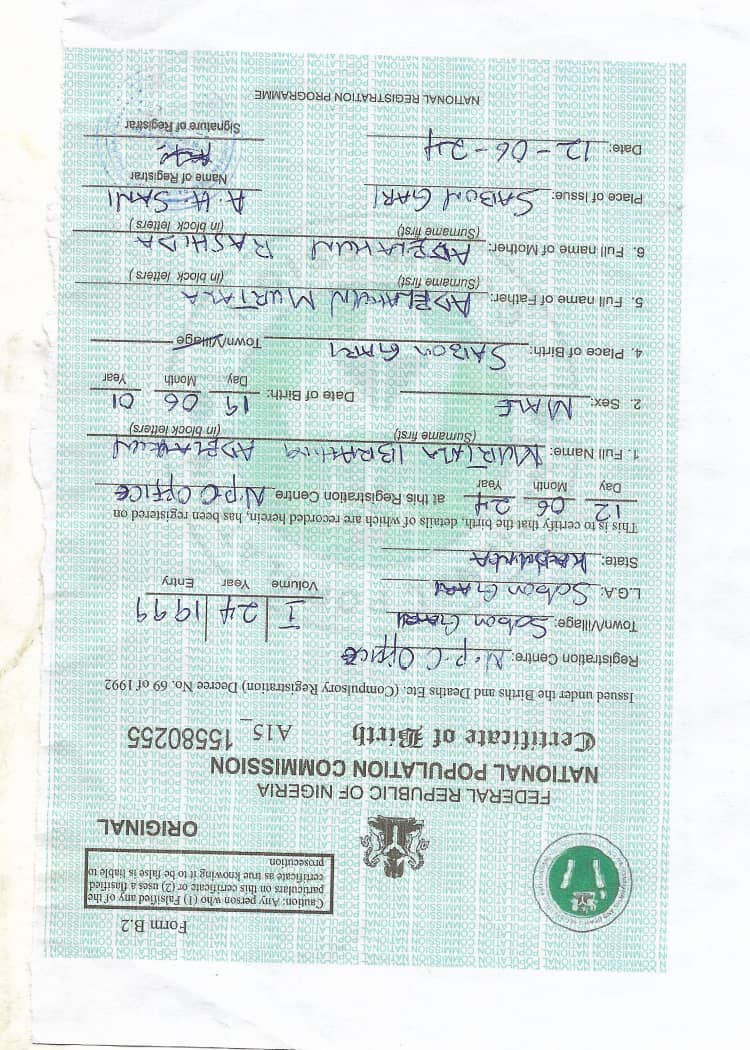 Form B.2
Caution: Any person who (1) Falsified any of the
particulars on this certificate or (2) uses a flasified
certificate as true knowing it to be false is liable to
prosecution
ORIGINAL
FEDERAL REPUBLIC OF NIGERIA
NATIONAL POPULATION COMMISSION
Certificate of Birth A15_ 15580255
Issued under the Births and Deaths Etc. (Compulsory Registration) Decree No. 69 of 1992
Registration Centre: N.P.C OFFICE
Town/Village: Sabon GARI
L.G.A: Sabon GARI
State: KADUNA
I 24 1999
Volume Year Entry
This is to certify that the birth, details of which are recorded herein, has been registered on
12 06 24 at this Registration Centre N.P.C OFFICE
Day Month Year
1. Full Name: MURTALA IBRAHIM ADELAKUN
(Surname first) (in block letters)
2. Sex: MALE Date of Birth: 19 06 01
Day Month Year
4. Place of Birth: SABON GARI Town/Village
5. Full name of Father: ADELAKUN MURTALA
(Surname first) (in block letters)
6. Full name of Mother: ADELAKUN RASHIDA
(Surname first) (in block letters)
Place of Issue: SABON GARI A. H. SANI
Name of Registrar
Date: 12-06-24
Signature of Registrar
NATIONAL REGISTRATION PROGRAMME